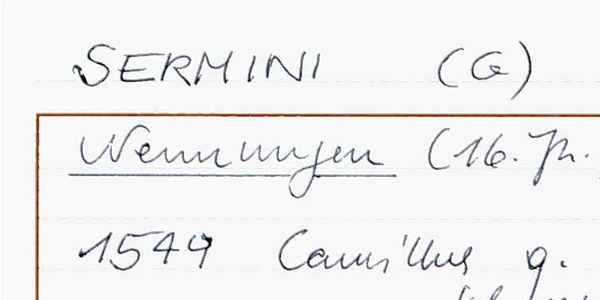 SERMINI (G)
Nennungen (16. Jh.
1549 Camillus q.